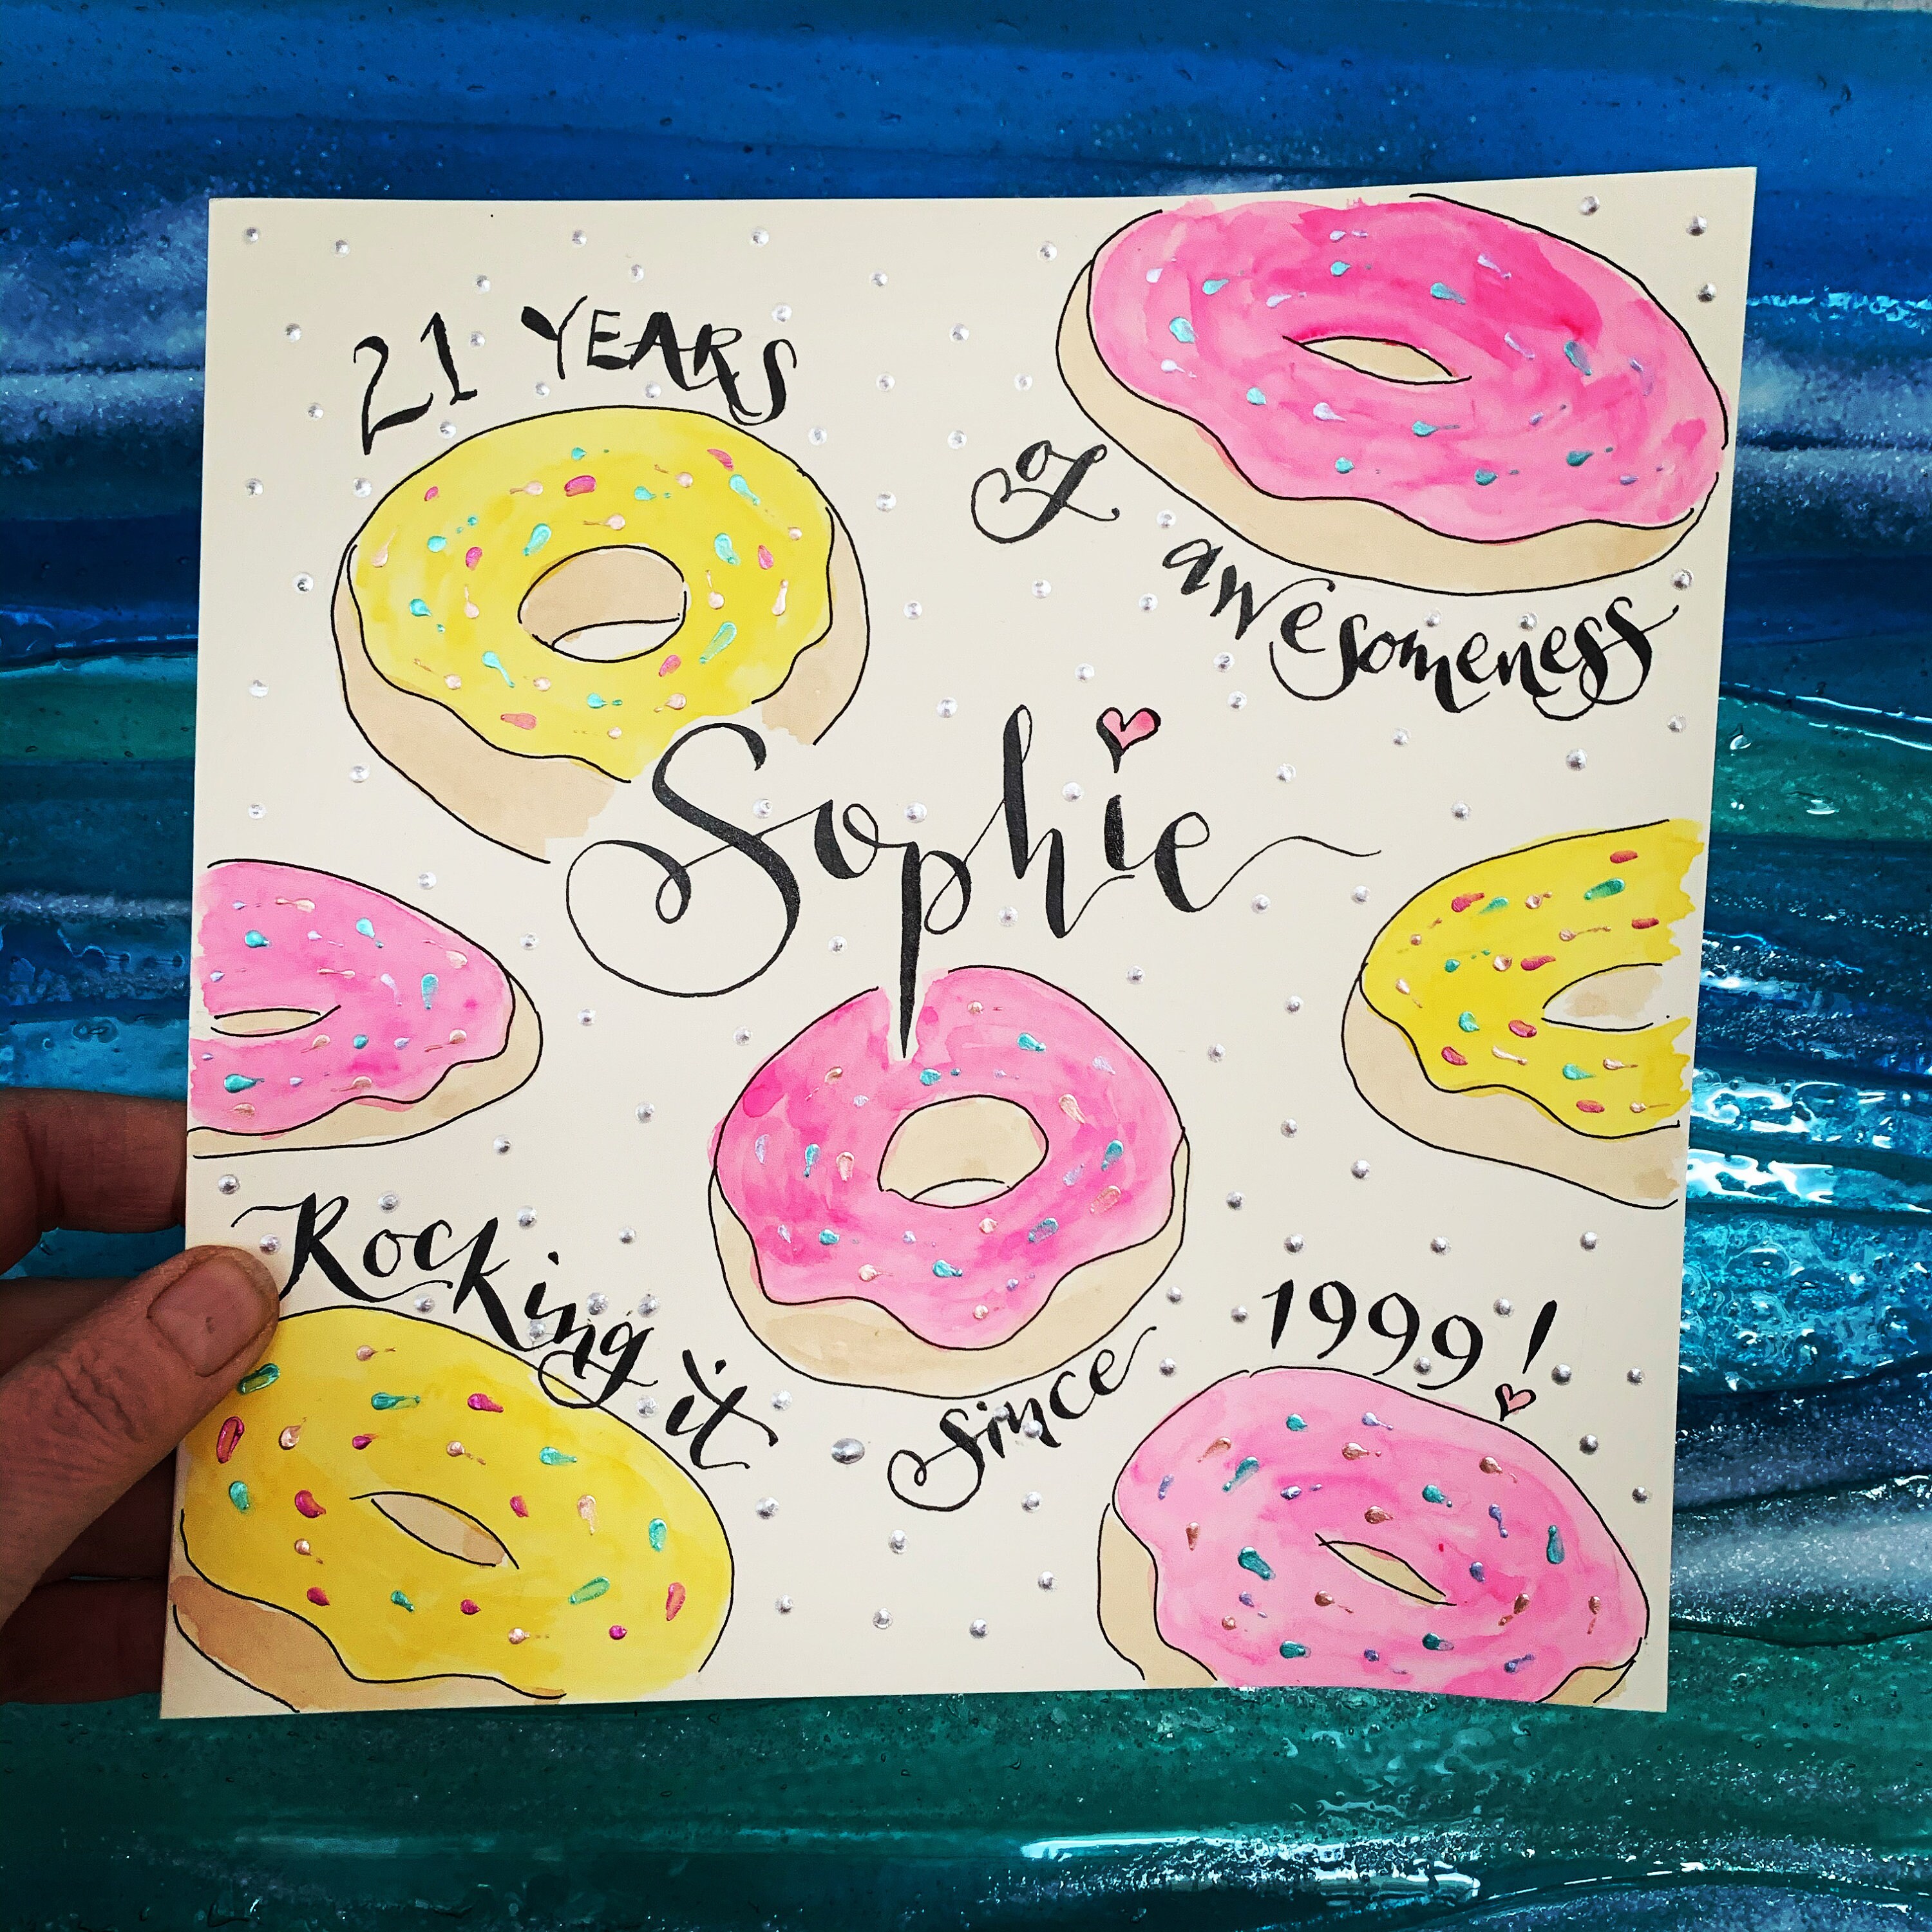 21 YEARS
of awesomeness
Sophie
Rocking it since 1999!